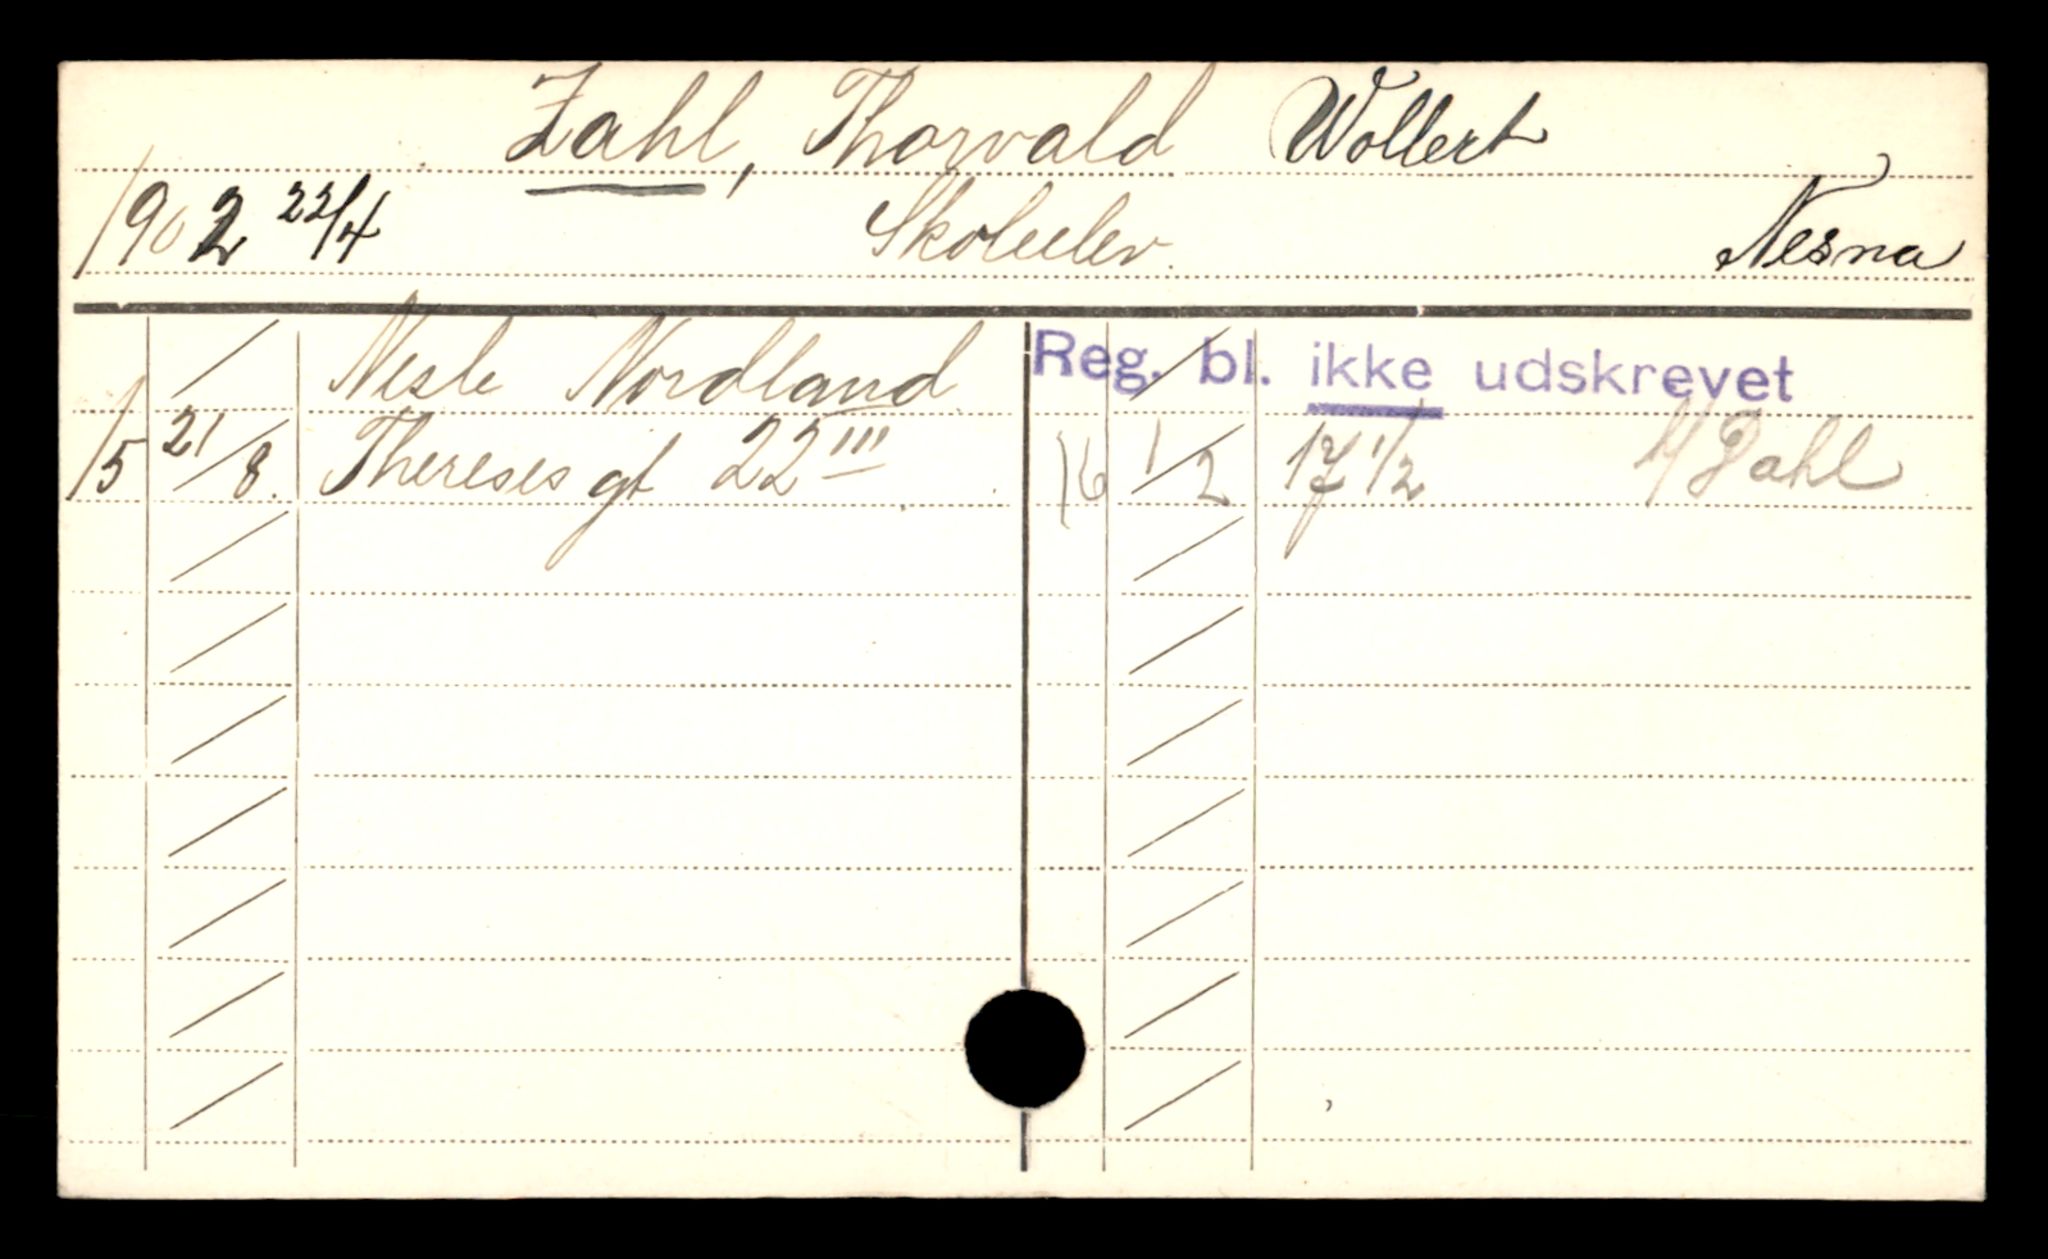 Zahl, Thorvald Wollert
1902 22/4 Skoleelev. Nesna
Nesle Nordland
15 21/8. Thereses gt 22 III
Reg. bl. ikke udskrevet
16 1/2 17 1/2 Dahl